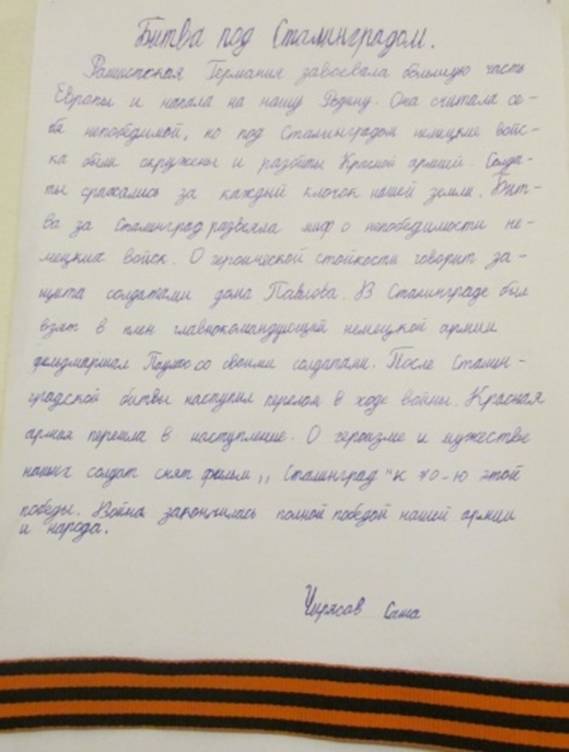 Битва под Сталинградом.
Фашистская Германия завоевала большую часть
Европы и напала на нашу Родину. Она считала се-
бя непобедимой, но под Сталинградом немецкие войс-
ка были окружены и разбиты Красной армией. Солда-
ты сражались за каждый клочок нашей земли. Бит-
ва за Сталинград развеяла миф о непобедимости не-
мецких войск. О героической стойкости говорит за-
щита солдатами дома Павлова. В Сталинграде был
взят в плен главнокомандующий немецкой армии
фельдмаршал Паулюс со своими солдатами. После Сталин-
градской битвы наступил перелом в ходе войны. Красная
армия перешла в наступление. О героизме и мужестве
наших солдат снят фильм ,, Сталинград " к 70-ю этой
победы. Война закончилась полной победой нашей армии
и народа.
Саша